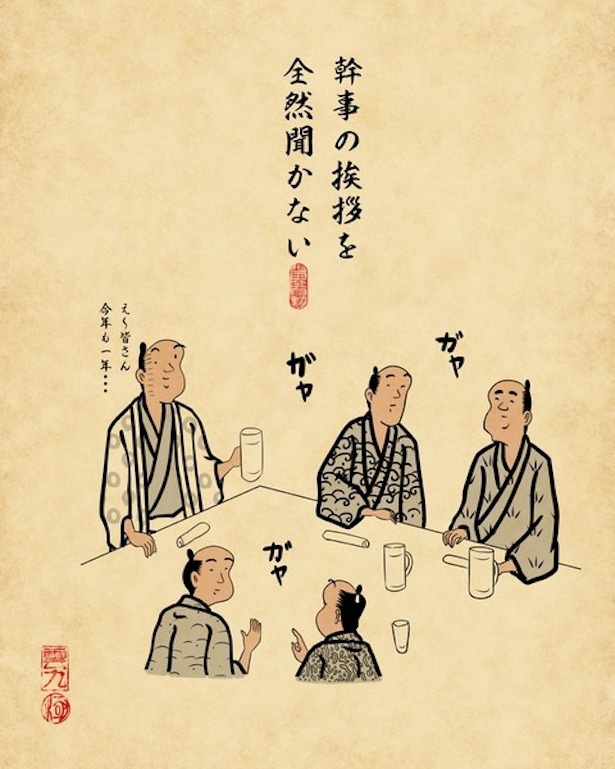 幹事の挨拶を
全然聞かない
ガヤ
ガヤ
え〜皆さん
今年も一年・・・
ガヤ